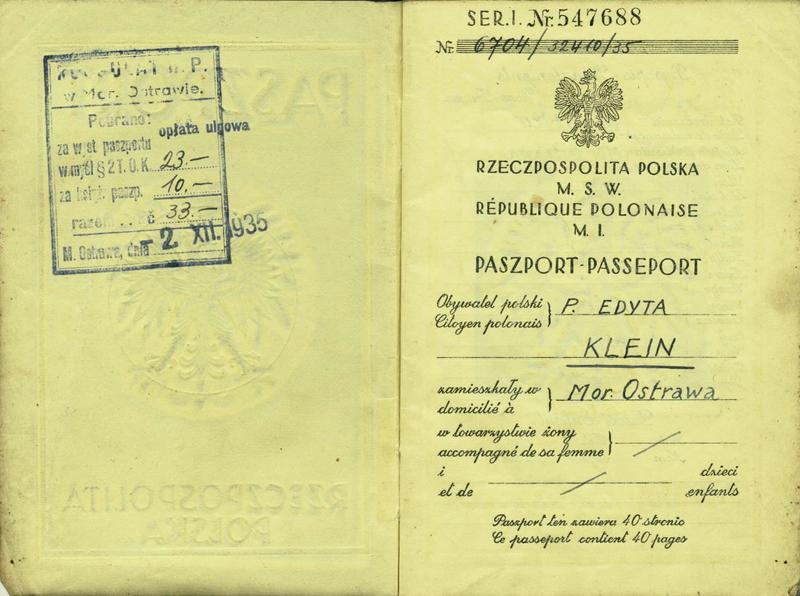 KONSULAT R. P.
w Mor. Ostrawie.
Pobrano:
opłata ulgowa
za wyst. paszportu
w myśl § 2 T. O. K. 23.—
za książ. paszp. 10.—
razem . . Kč 33.—
M. Ostrawa, dnia - 2 XII. 1935
SER. I. Nr. 547688
Nr. 6704/32410/35
RZECZPOSPOLITA POLSKA
M. S. W.
RÉPUBLIQUE POLONAISE
M. I.
PASZPORT-PASSEPORT
Obywatel polski
Citoyen polonais } P. EDYTA
KLEIN
zamieszkały w
domicilié à } Mor. Ostrawa
w towarzystwie żony
accompagné de sa femme } /
i / dzieci
et de enfants
Paszport ten zawiera 40 stronic
Ce passeport contient 40 pages
PASZPORT
RZECZPOSPOLITA
POLSKA